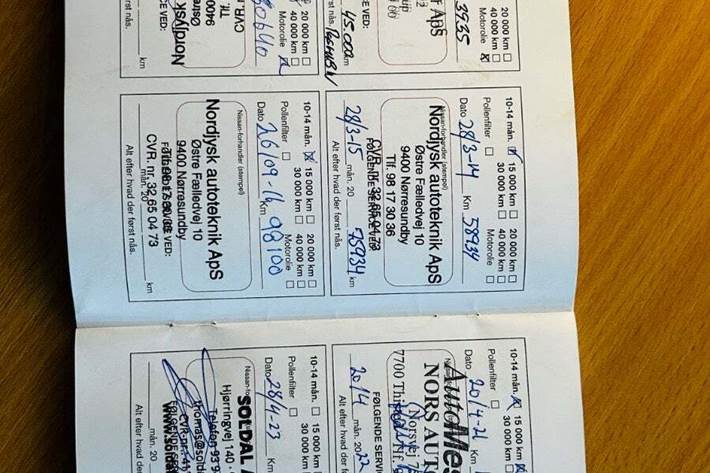 20 000 km
40 000 km
Motorolie
3935
ApS
VED:
45.000 km
20 000 km
40 000 km
Motorolie
80640
CVR.
9400
Nordjysk
VED:
km
10-14 mån. 15 000 km 20 000 km
30 000 km 40 000 km
Pollenfilter Motorolie
Dato 28/3-14 Km 58934
Nissan-forhandler (stempel)
Nordjysk autoteknik ApS
Østre Fælledvej 10
9400 Nørresundby
Tlf. 98 17 30 36
CVR. nr. 32 65 04 73
FØLGENDE SERVICE VED:
28/3-15 mån. 20 75934 km
Alt efter hvad der først nås.
10-14 mån. 15 000 km 20 000 km
30 000 km 40 000 km
Pollenfilter Motorolie
Dato 26/09-16 Km 98100
Nissan-forhandler (stempel)
Nordjysk autoteknik ApS
Østre Fælledvej 10
9400 Nørresundby
CVR. nr. 32 65 04 73
mån. 20 km
Alt efter hvad der først nås.
10-14 mån. 15 000 km
30 000 km
Pollenfilter
Dato 20/4-21 Km
AutoMes
NORS AUT
(Norsvej
7700 Thi
FØLGENDE SERVI
20/4 mån. 2022
Alt efter hvad der
10-14 mån. 15 000 km
30 000 km
Pollenfilter
Dato 28/4-23 Km
SOLDAL A
Hjørringvej 140
Telefon 93 9
thomas@sold
CVR-nr.: 41
www.soldal
mån. 20
Alt efter hvad der